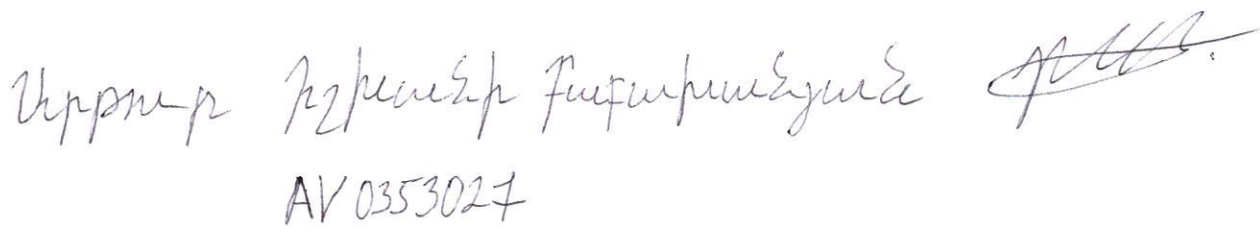 Արթուր Իշխանի Բաբախանյան
AV0353027